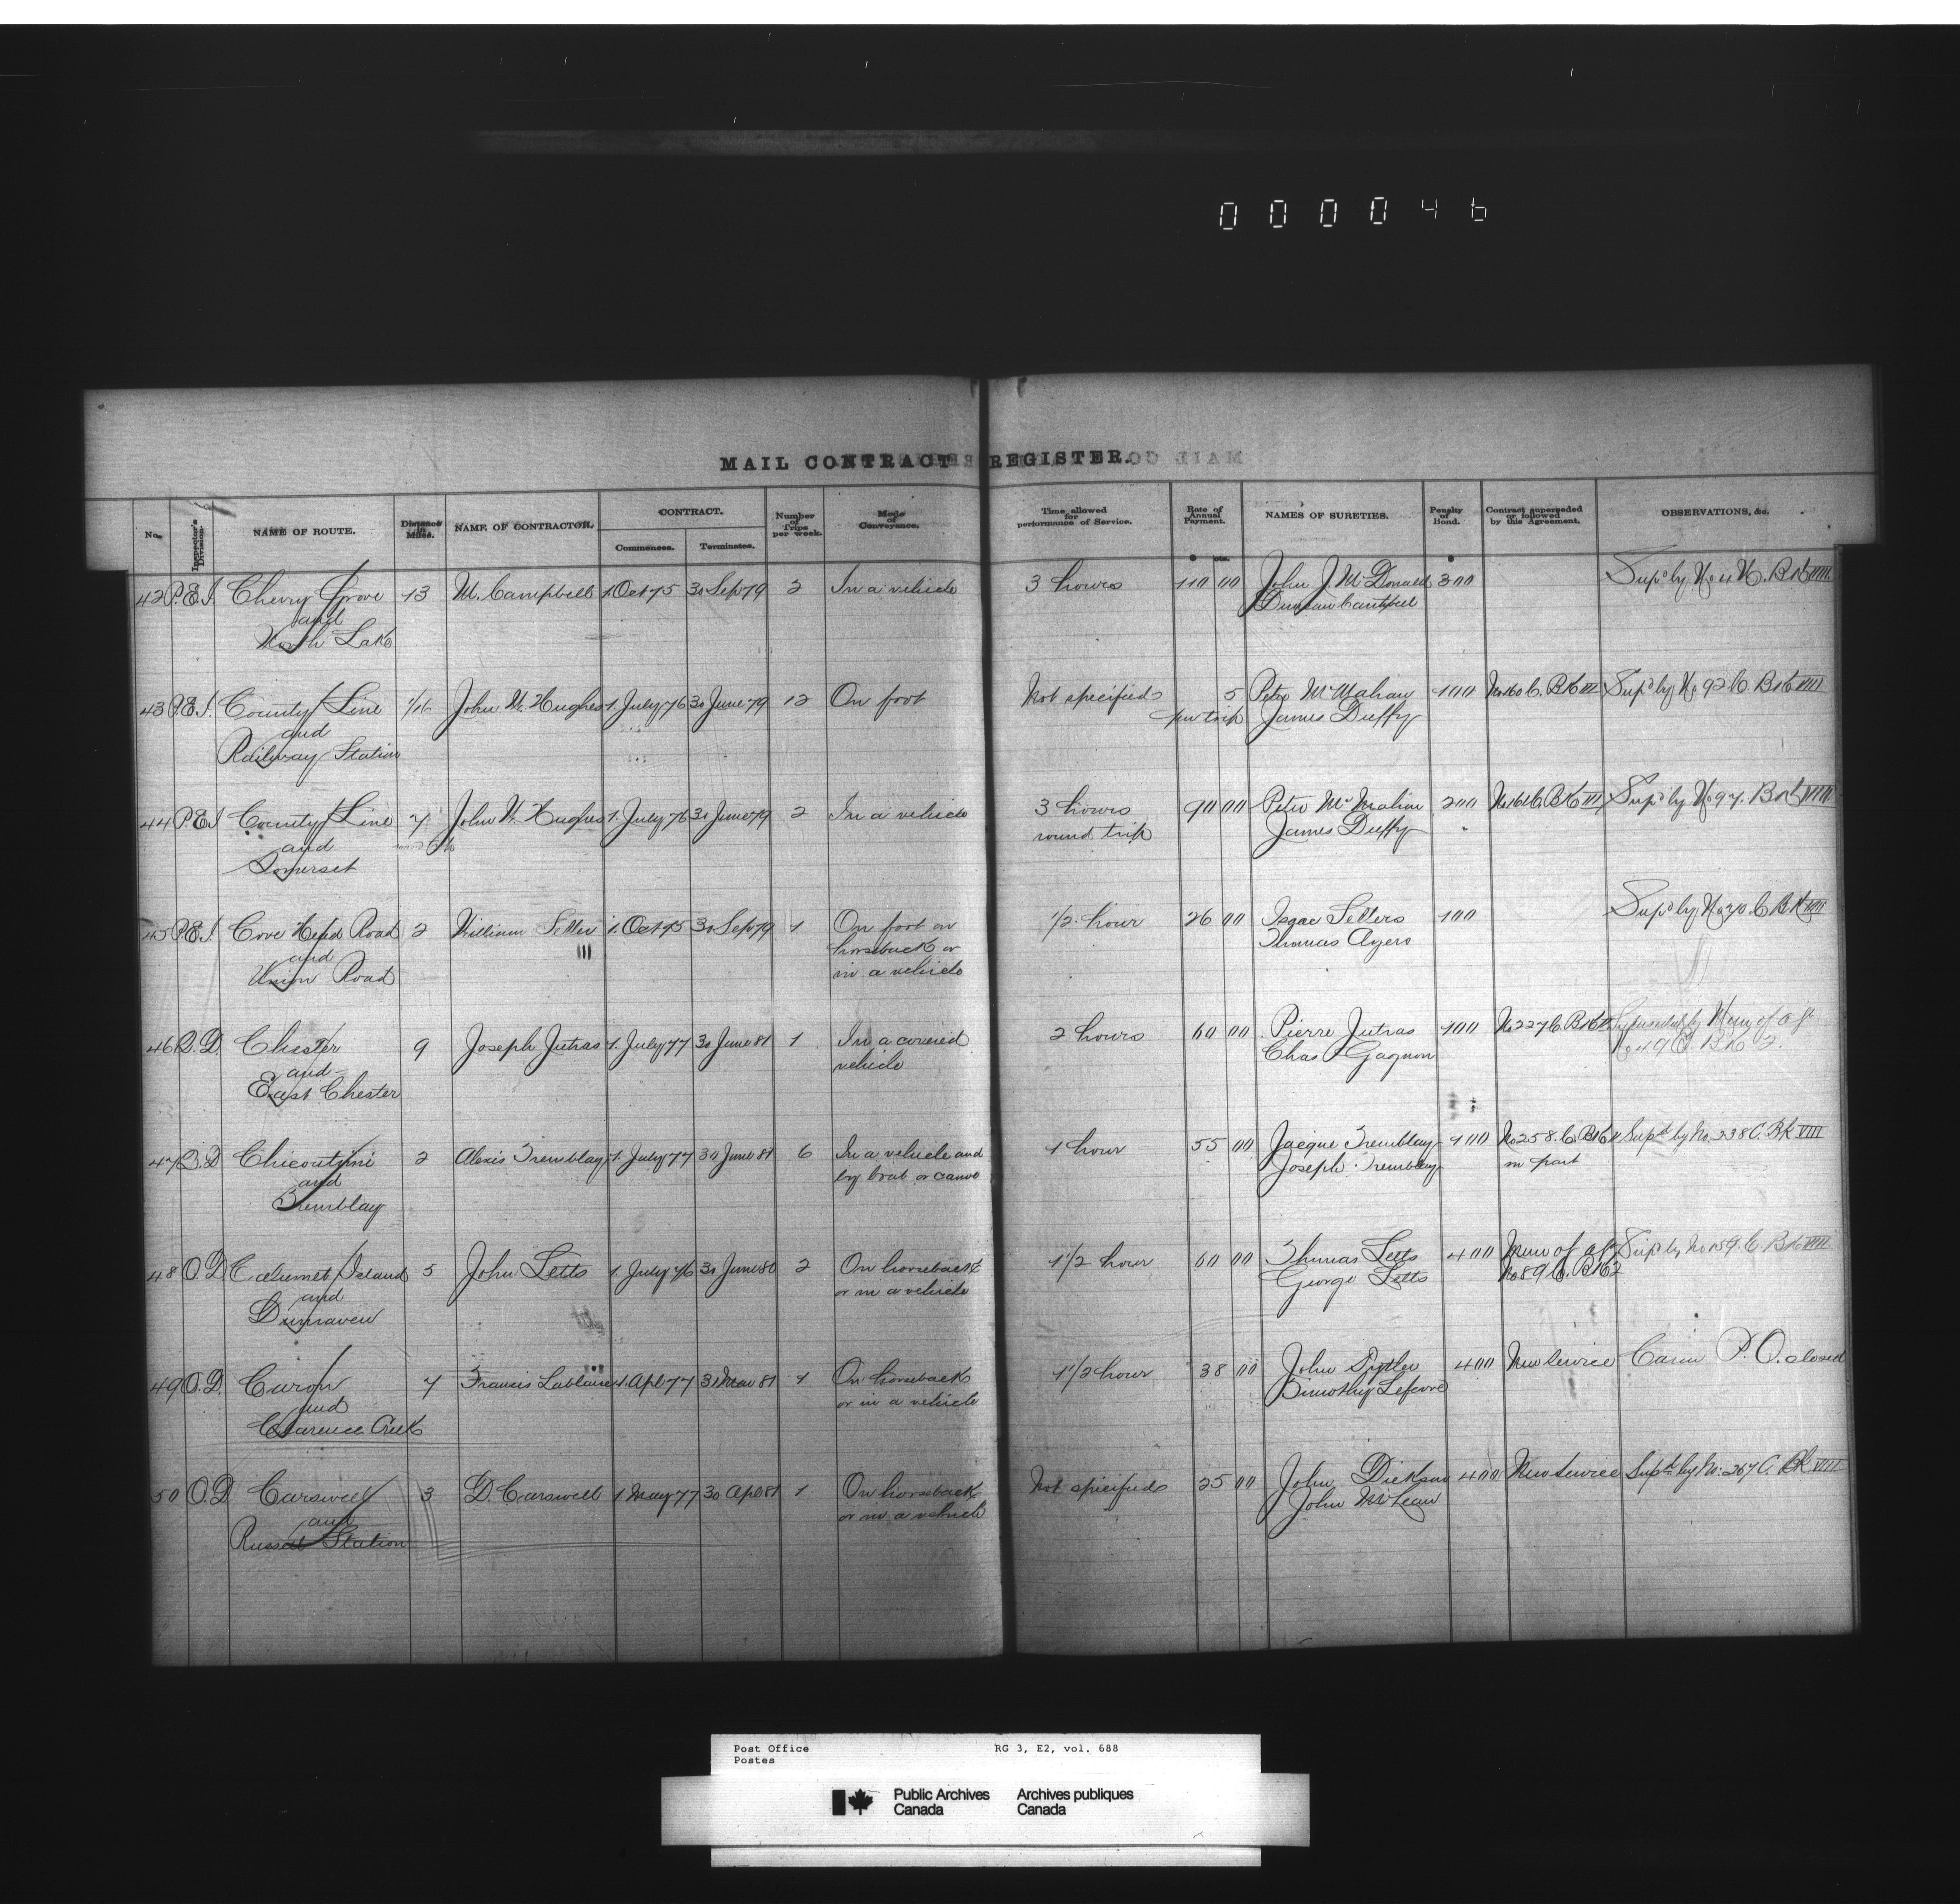 000046
MAIL CONTRACT REGISTER.
No. Inspector's Division. NAME OF ROUTE. Distance in Miles. NAME OF CONTRACTOR. CONTRACT. Commences. Terminates. Number of Trips per week. Mode of Conveyance. Time allowed for performance of Service. Rate of Annual Payment. $ cts. NAMES OF SURETIES. Penalty of Bond. $ Contract superseded or followed by this Agreement. OBSERVATIONS, &c.
42 P.E.I. Cherry Grove 13 M. Campbell 1 Oct 75 30 Sep 79 2 In a vehicle 3 hours 110 00 John J. McDonald 300 Sup'd by No 4 N. Bk VIII
and Duncan Campbell
North Lake
43 P.E.I. County Line 1/16 John W. Hughes 1. July 76 30 June 79 12 On foot Not specified 5 Peter McMahan 100 No 160 C. Bk III Sup'd by No 92 C. Bk VIII
and per trip James Duffy
Railway Station
44 P.E.I County Line 7 John W. Hughes 1. July 76 30 June 79 2 In a vehicle 3 hours 90 00 Peter McMahan 200 No 161 C. Bk III Sup'd by No 97. Bk VIII
and round trip James Duffy
Somerset
45 P.E.I. Cove Head Road 2 William 1. Oct 75 30 Sep 79 1 On foot or 1/2 hour 26 00 Isaac Selters 100 Sup'd by No 70. C Bk VIII
and horseback or Thomas Ayers
Union Road in a vehicle
46 Q.D. Chester 9 Joseph Jutras 1. July 77 30 June 81 1 In a covered 2 hours 60 00 Pierre Jutras 100 No 227 C. Bk Superseded by Mem of agt
and vehicle Chas Gagnon No 49 C. Bk 2.
East Chester
47 Q.D Chicoutimi 2 Alexis Tremblay 1. July 77 30 June 81 6 In a vehicle and 1 hour 55 00 Jacque Tremblay 100 No 258. C. Bk Supd by No. 238 C. Bk VIII
and by boat or canoe Joseph Tremblay in part
Tremblay
48 O.D Calumet Island 5 John Letts 1. July 76 30 June 80 2 On horseback 1 1/2 hour 60 00 Thomas Letts 400 Mem of agt Sup'd by No 159. C Bk VIII
and or in a vehicle George Letts No 89 C. Bk 2
Dunraven
49 O.D. Caron 7 Francis 1. Apl 77 31 Mar 81 1 On horseback 1 1/2 hour 38 00 John 400 New Service P.O. closed
and or in a vehicle Timothy Lefevre
Clarence Creek
50 O.D Carswell 3 D. Carswell 1 May 77 30 Apl 81 1 On horseback Not specified 25 00 John Dickson 400 New Service Supd by No: 267 C. Bk VIII
and or in a vehicle John McLean
Russell Station
Post Office RG 3, E2, vol. 688
Postes
Public Archives Archives publiques
Canada Canada